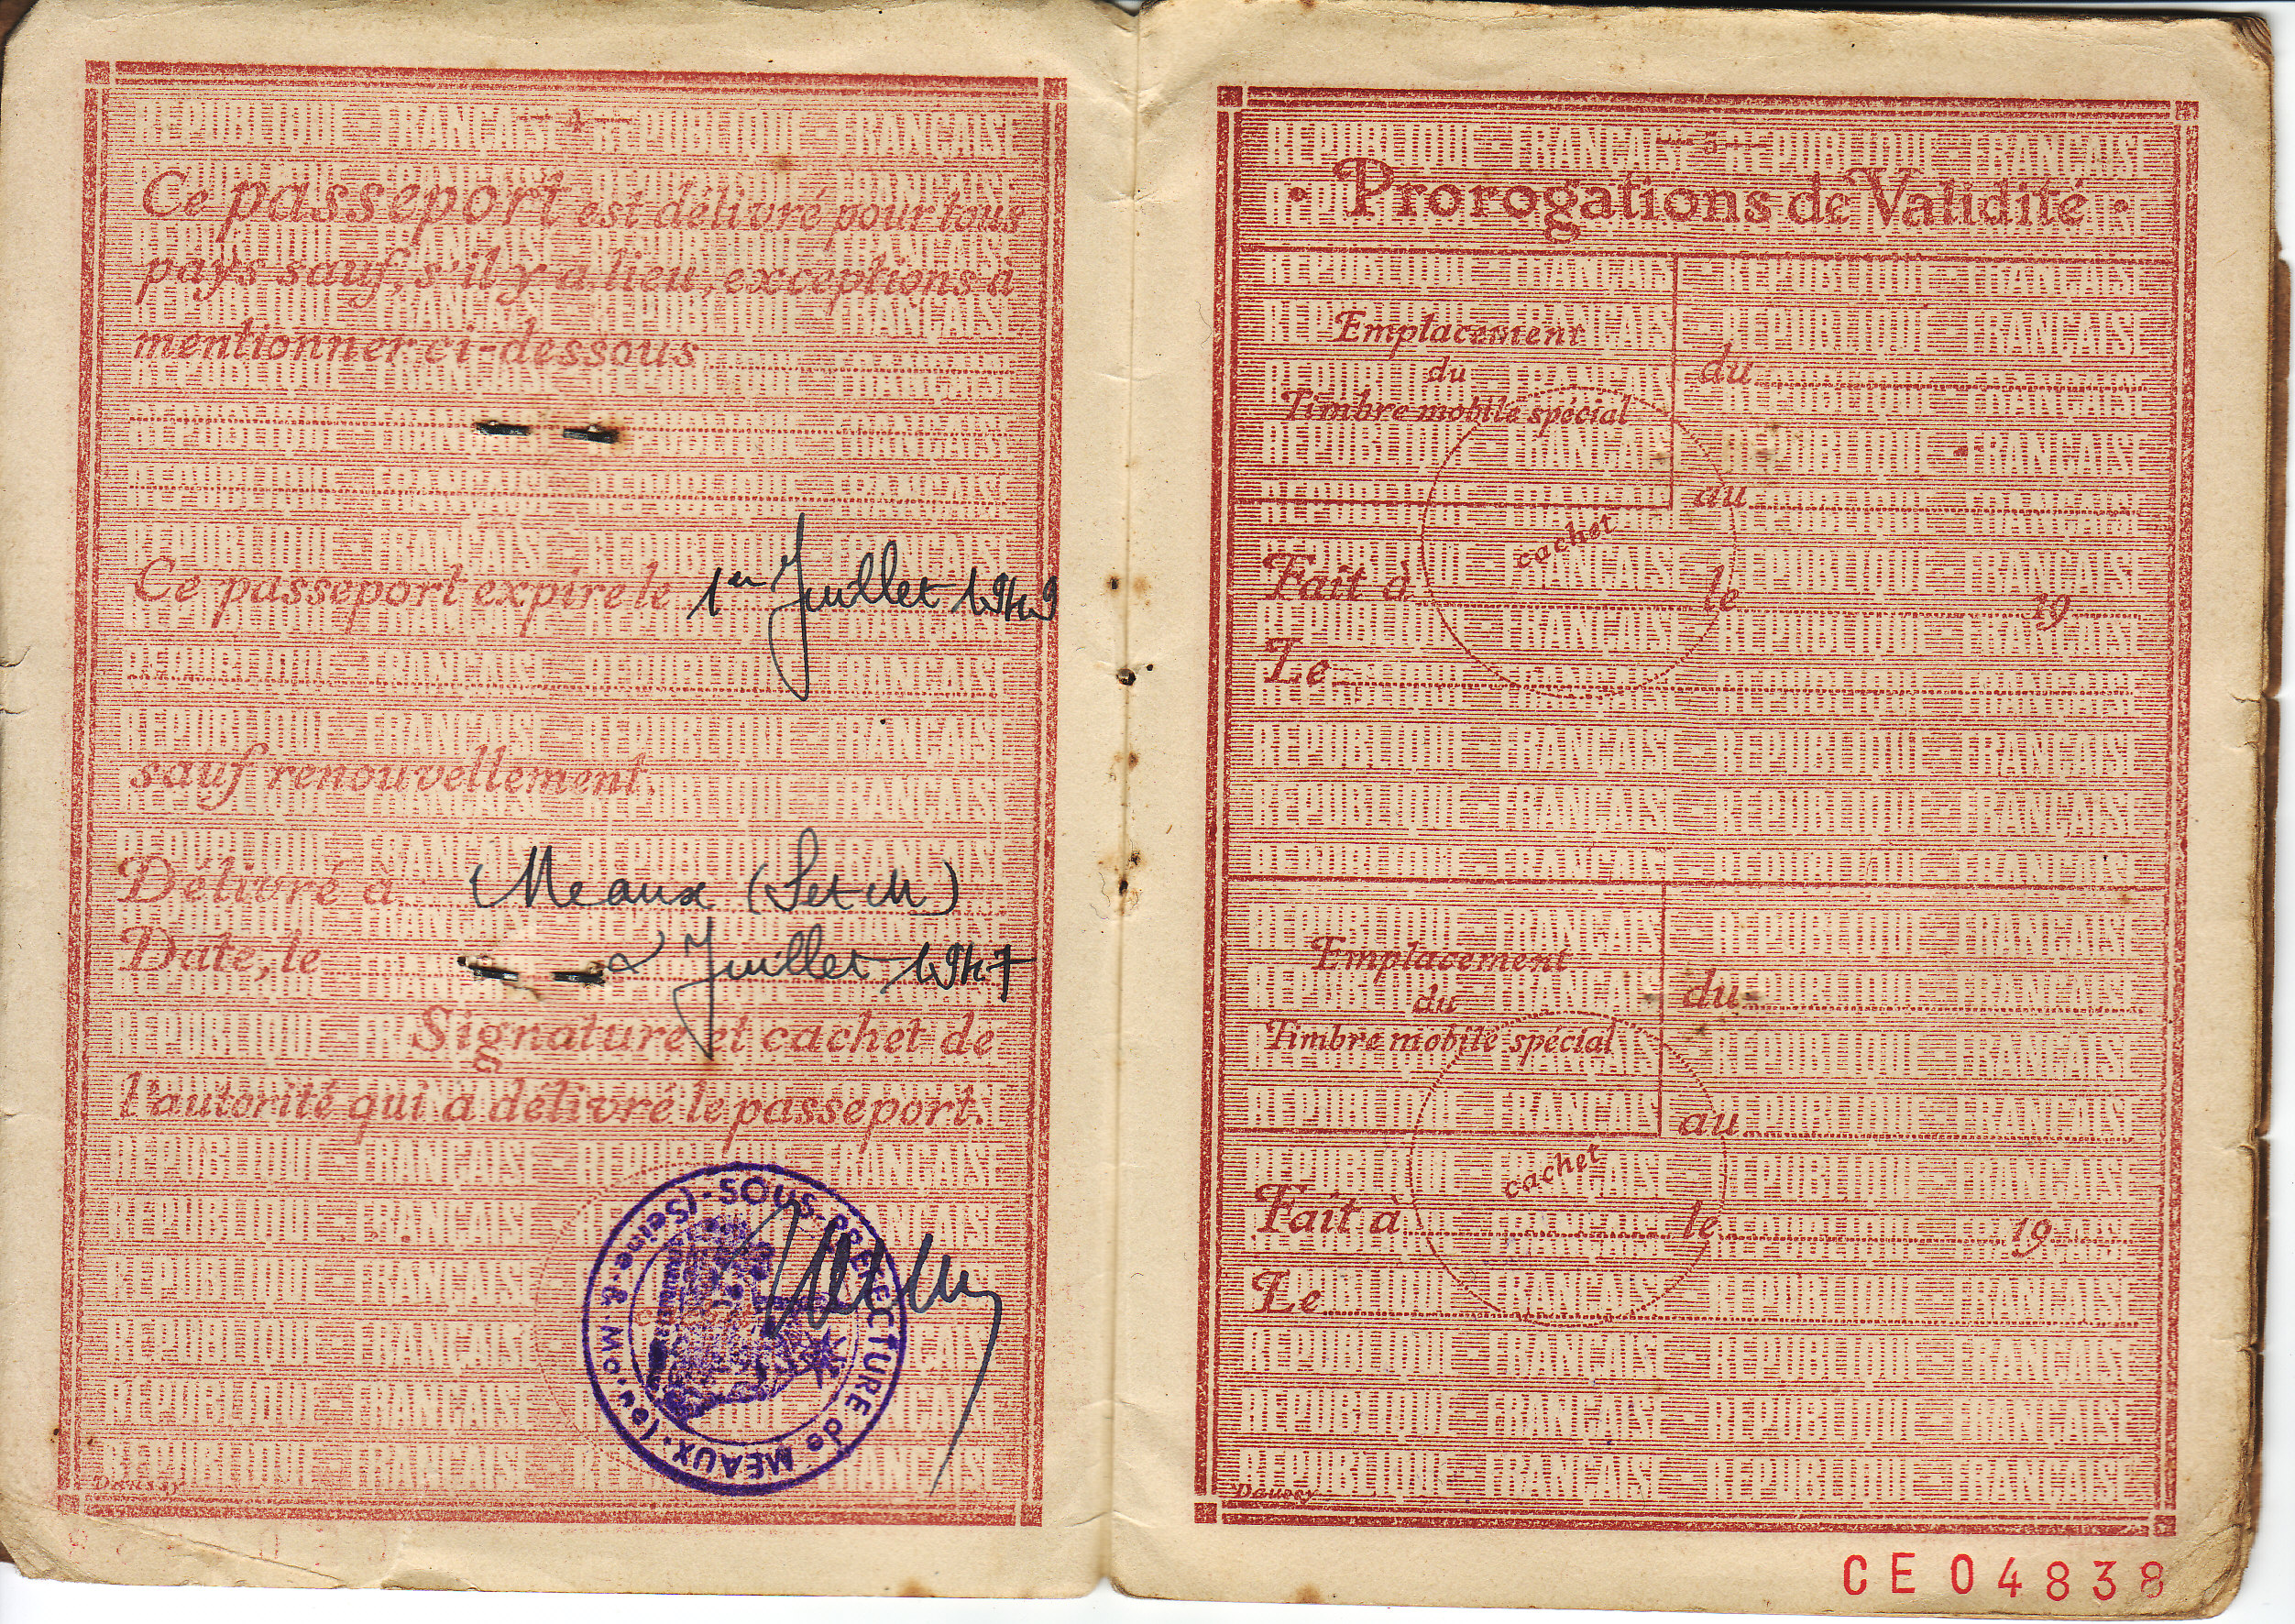 — 4 —
Ce passeport est délivré pour tous
pays sauf, s'il y a lieu, exceptions à
mentionner ci-dessous
Ce passeport expire le 1er Juillet 1949
sauf renouvellement.
Délivré à Meaux (S et M)
Date, le 2 Juillet 1947
Signature et cachet de
l'autorité qui a délivré le passeport.
SOUS-PRÉFECTURE de MEAUX
(Seine-&-Marne)
Daussy
— 5 —
• Prorogations de Validité •
Emplacement
du
Timbre mobile spécial
du
au
cachet
Fait à le 19
Le
Emplacement
du
Timbre mobile spécial
du
au
cachet
Fait à le 19
Le
Daussy
CE04838
RÉPUBLIQUE - FRANÇAISE